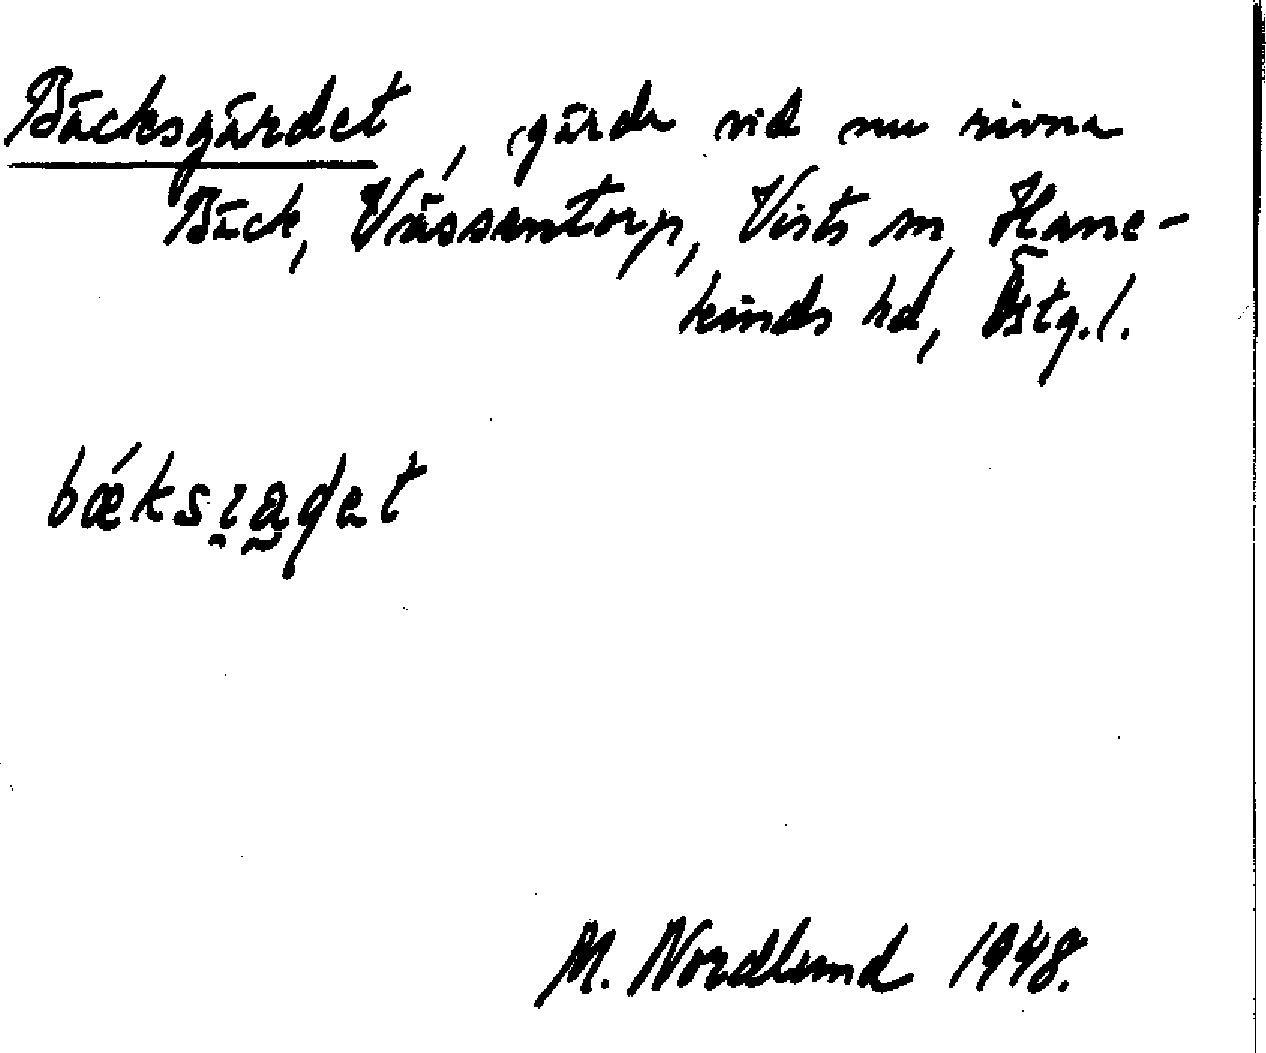 Bäcksgärdet, gärde vid nu rivna
Bäck, Vässentorp, Vists sn, Hane-
kinds hd, Östg. l.
bǽksɪ̯a̰ɖet
M. Nordlund 1948.